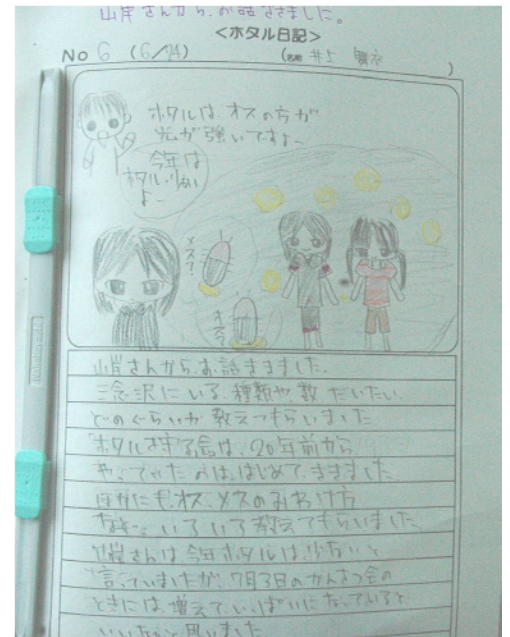 山岸さんから、お話をききました。
<ホタル日記>
No 6 (6/14)
(名前 井上 舞衣 )
ホタルは、オスの方が
光が強いですよ〜
今年は
ホタル少ない
よ〜
メス?
オス?
山岸さんから、お話ききました。
三念沢にいる、種類や、数 だいたい、
どのぐらいか 教えてもらいました
ホタルを守る会は、20年前から
やってかた のは、はじめて、ききました
ほかにも、オス、メスのみわけ方
など、いろいろ教えてもらいました
山岸さんは、今年ホタルは、少ないと
言っていましたが、7月3日のかんさつ会の
ときには、増えて、いっぱいになっていると
いいなぁと思いました。